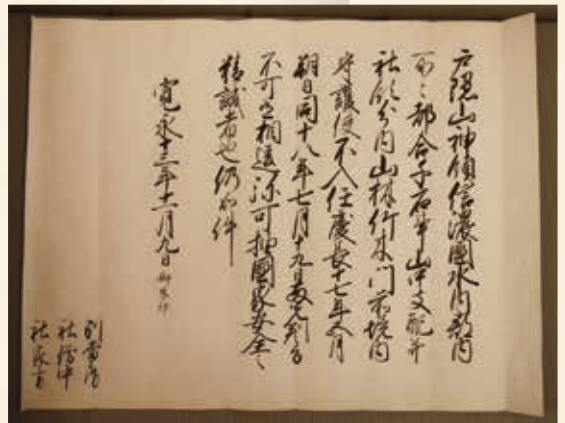 戸隠山神領信濃國水内郡内
所々都合千石事山中支配并
社領分内山林竹木門前境内
守護使不入任慶長十七年五月
朔日同十八年七月十九日両先判之旨
不可有相違弥可抽國家安全之
精誠者也仍如件
寛永十三年十一月九日 御朱印
別當済
社僧中
社家方